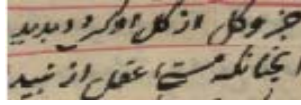 جز و کل از کل او کرد پدید
آنچنانکه مستی عقل از نبید